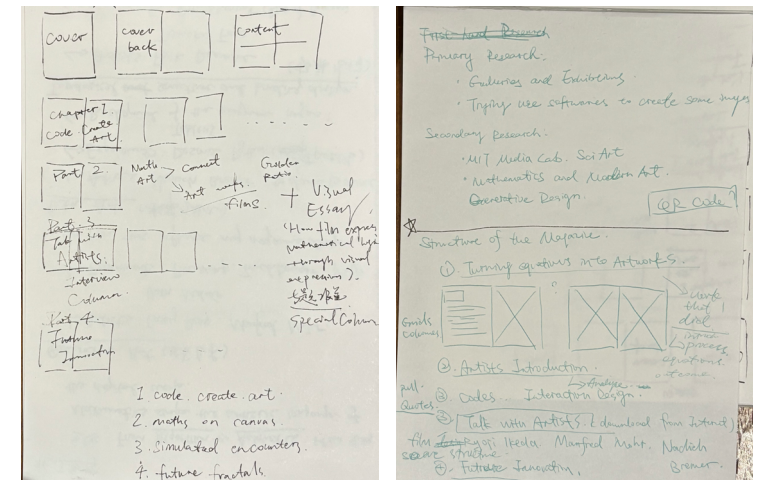 cover
cover
back
content
chapter 1.
code. Create
Art
Part 2.
Math
Art
Connect
Art
films.
Golden
Ratio
+ Visual
Essay
"How film express
mathematical
through visual
expression?
Special Column
Part. 3
Talk with
Artists.
Interview
Column
Part. 4
Future
Innovation
1. code. create. art.
2. maths on canvas.
3. simulated encounters
4. future fractals.
First-hand Research
Primary Research:
· Galleries and Exhibitions.
· Trying use softwares to create some images
Secondary Research.
· MIT Media Lab. Sci Art
· Mathematics and Modern Art.
Generative Design.
QR code?
Structure of the Magazine.
①. Turning equations into Artworks.
?
Grids
columns
work
that
done
process
equations
outcome.
②. Artists Introduction.
Analyse
pull
Quotes.
② Codes... Interaction Design.
③ Talk with Artists. (download from Internet)
film Ryoji Ikeda. Manfred Mohr. Nadieh
Bremer.
structure.
④. Future Innovation.